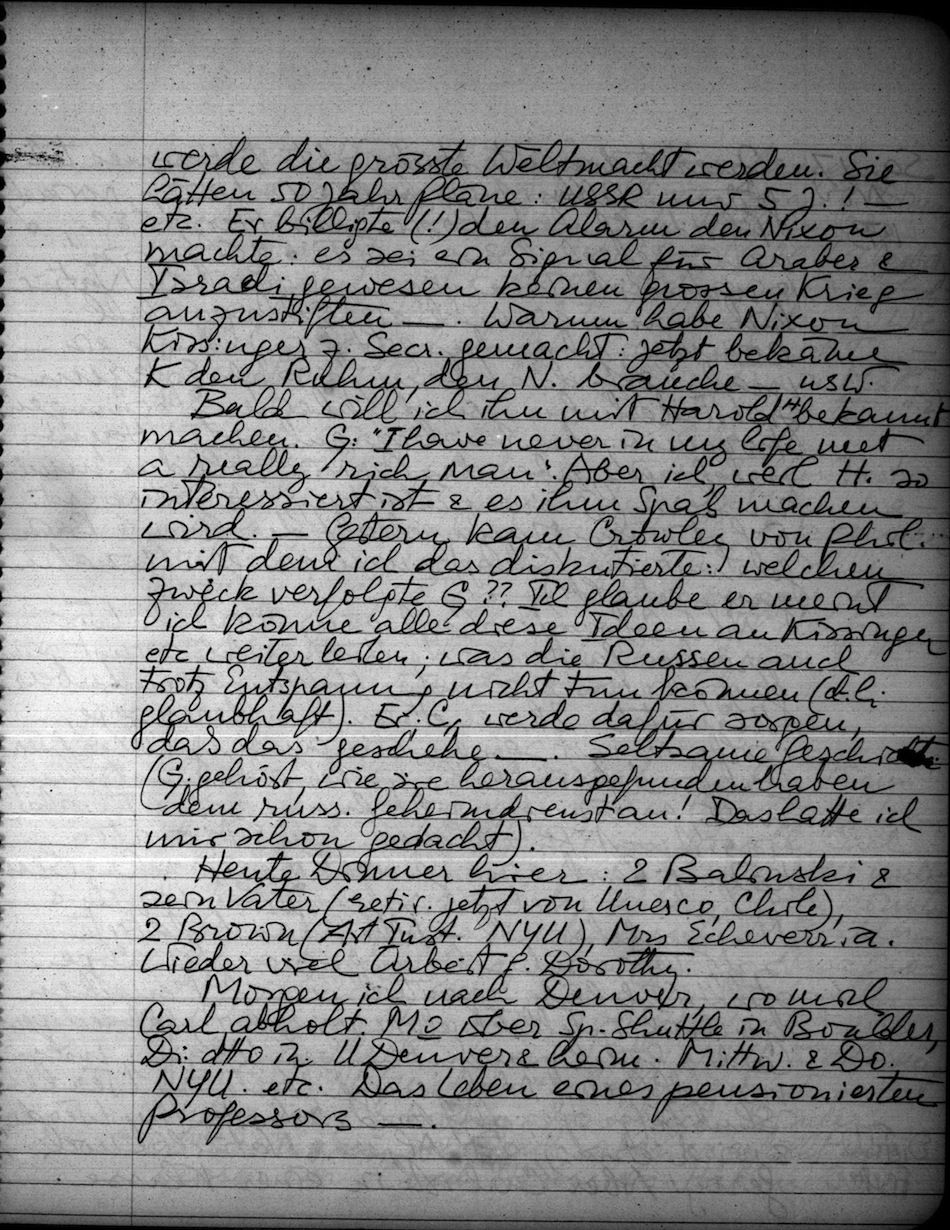 werde die grösste Weltmacht werden. Sie
hätten 50 Jahrpläne: USSR nur 5 J.! —
etc. Er billigte (!) den Alarm den Nixon
machte: es sei ein Signal für Araber &
Israeli gewesen keinen grossen Krieg
anzustiften —. Warum habe Nixon
Kissinger z. Secr. gemacht: jetzt bekäme
K den Ruhm, den N. brauche — usw.
Bald will ich ihn mit Harold H bekannt
machen. G: "I have never in my life met
a really rich man". Aber ich, weil H. so
interessiert ist & es ihm Spaß machen
wird. — Gestern kam Crowley von Phil.
mit dem ich das diskutierte: welchen
Zweck verfolgte G?? Ich glaube er meint
ich könne alle diese Ideen an Kissinger
etc weiterleiten; was die Russen auch
trotz Entspannung nicht tun können (d.h.
glaubhaft). Er, C, werde dafür sorgen,
daß das geschehe —. Seltsame Geschichte
(G. gehört, wie sie herausgefunden haben
dem russ. Geheimdienst an! Das hatte ich
mir schon gedacht).
Heute Dinner hier: 2 Balinski &
sein Vater (retir. jetzt von Unesco, Chile),
2 Brown (Art Inst. NYU), Mrs Echeverria.
Wieder viel Arbeit f. Dorothy.
Morgen ich nach Denver, wo mich
Carl abholt. Mo über Sp. Shuttle in Boulder,
Di. dtto in U Denver & heim. Mittw. & Do.
NYU. etc. Das Leben eines pensionierten
Professors —.